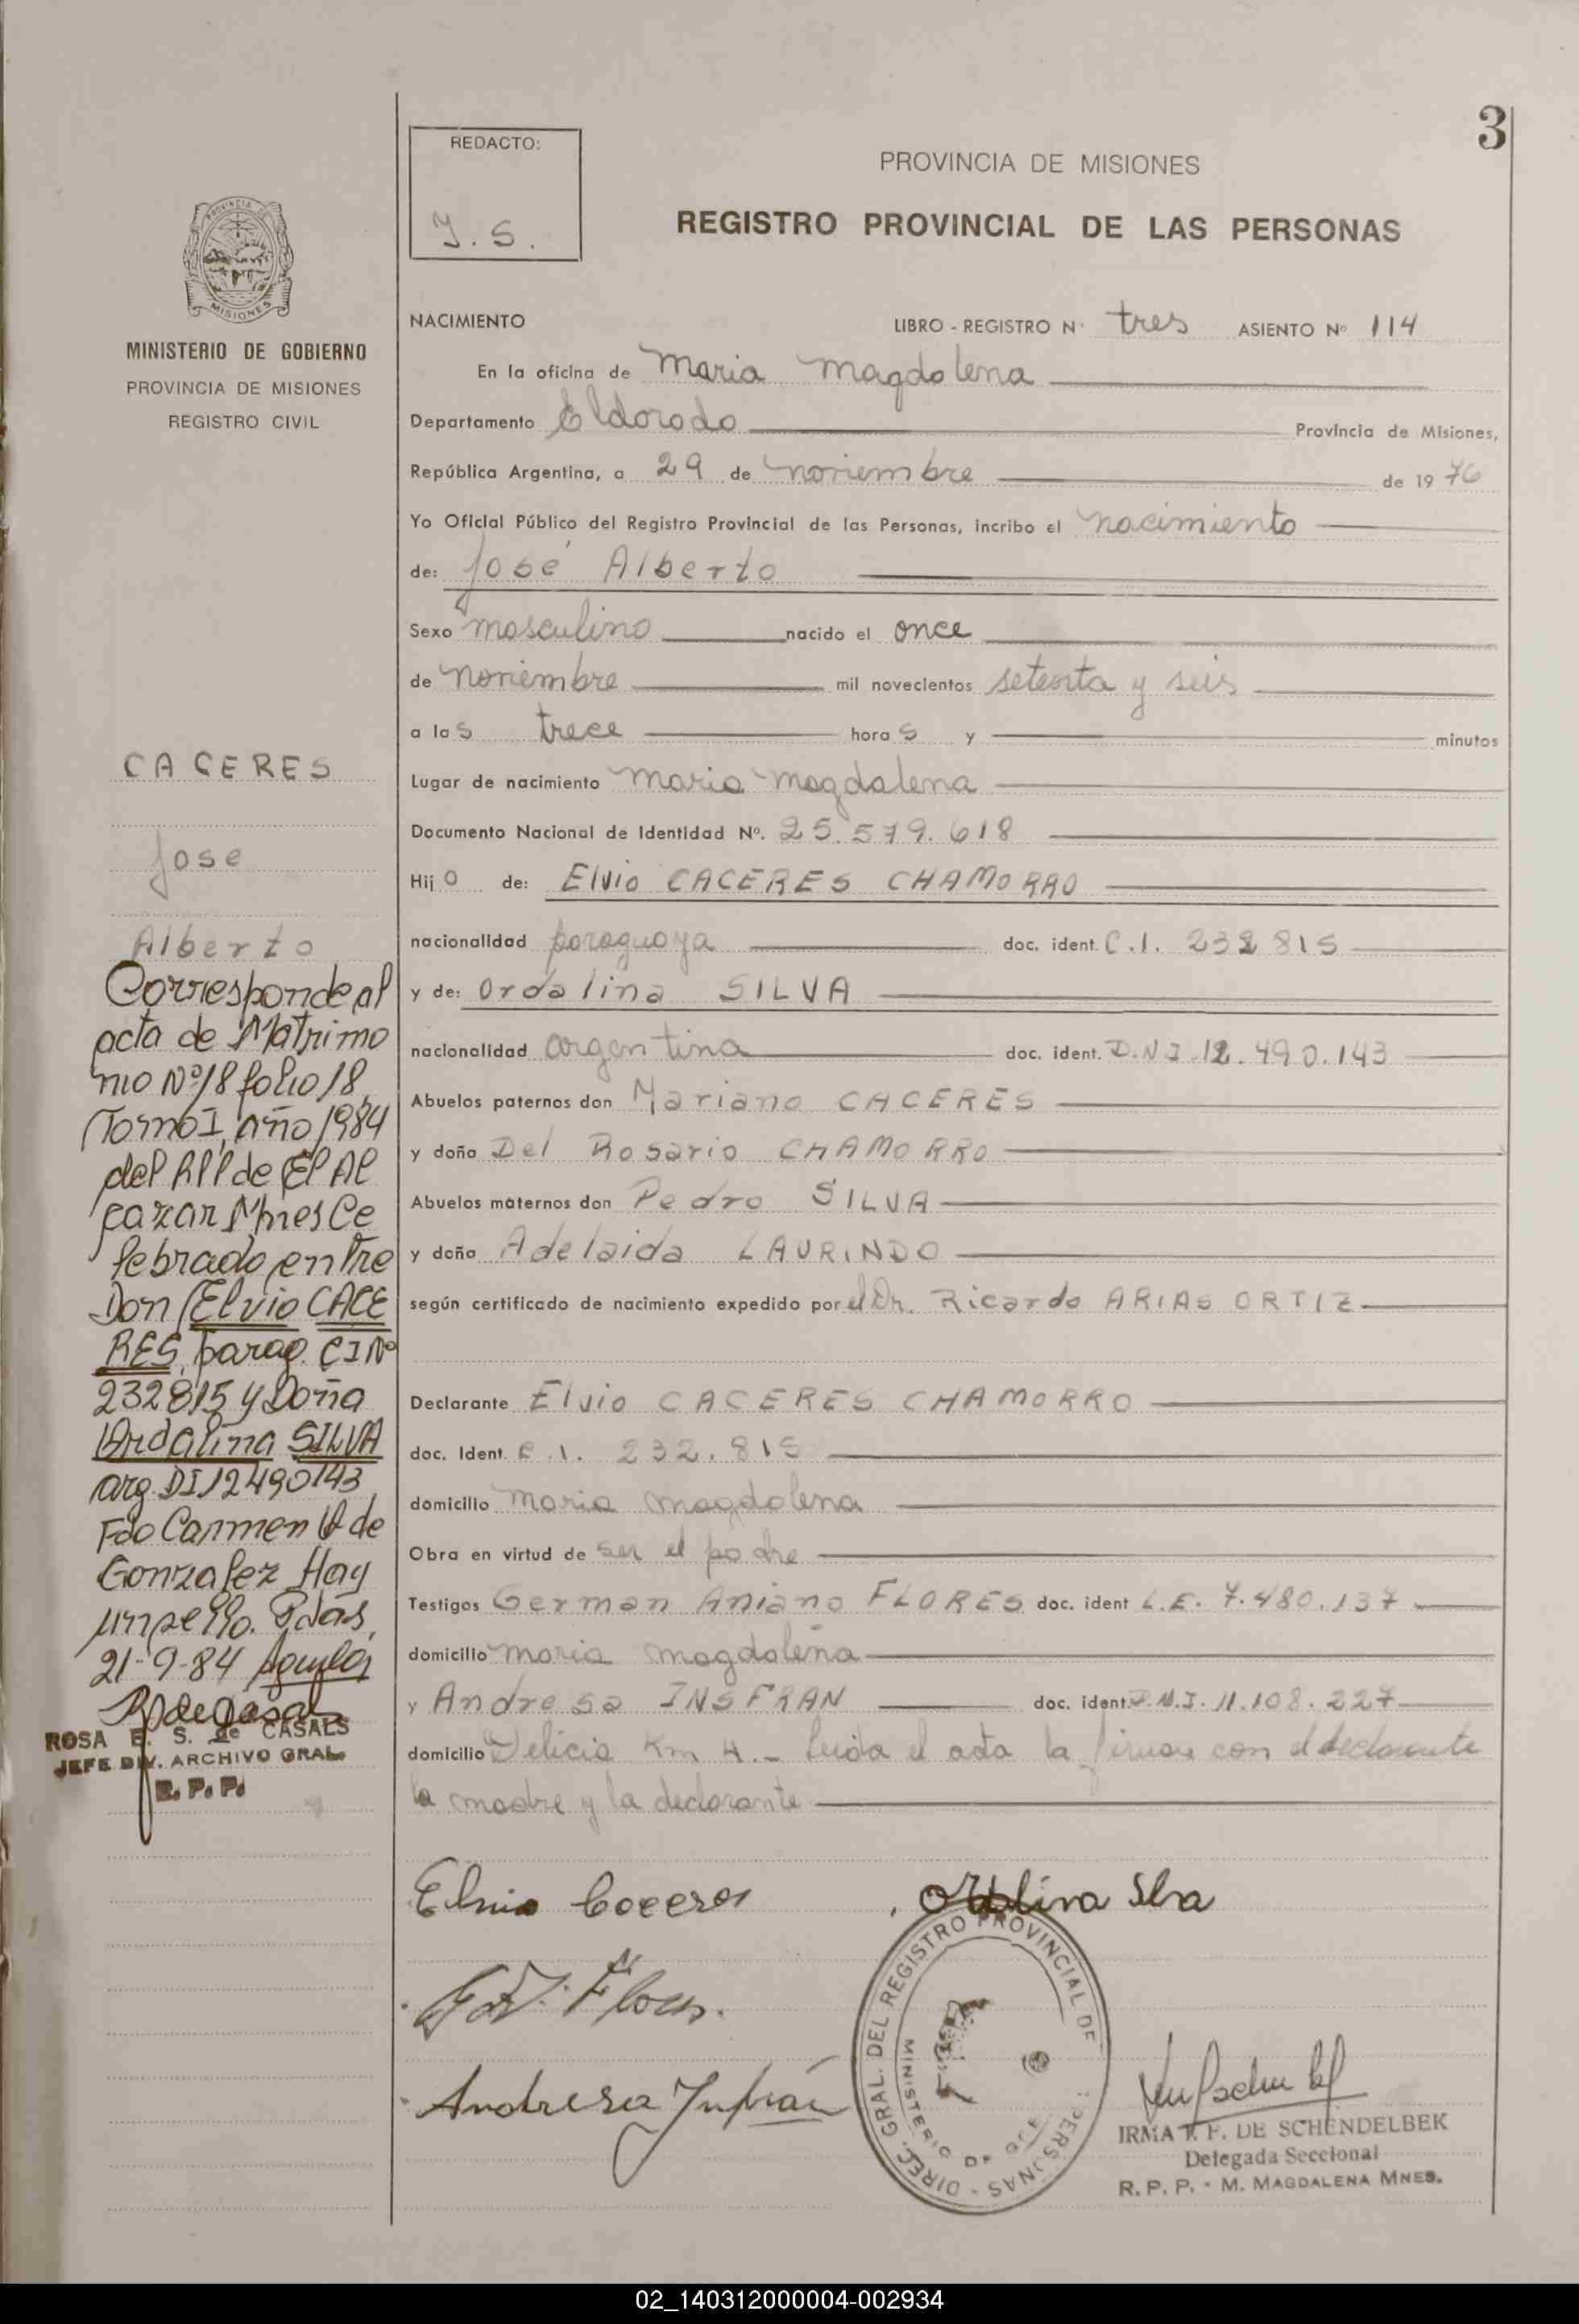 3
REDACTO:
J. S.
PROVINCIA DE MISIONES
REGISTRO PROVINCIAL DE LAS PERSONAS
PROVINCIA DE
MISIONES
MINISTERIO DE GOBIERNO
PROVINCIA DE MISIONES
REGISTRO CIVIL
CACERES
Jose
Alberto
Corresponde al
acta de Matrimo
nio Nº 18 folio 18
Tomo I, año 1984
del RPP de El Al
cazar Mnes Ce
lebrado entre
Don Elvio CACE
RES, parag. CI Nº
232815 y Doña
Ordalina SILVA
arg. DI 12490143
Fdo Carmen de
Gonzalez Hay
un sello. Pdas,
21-9-84
ROSA E. S. de CASALS
JEFE DIV. ARCHIVO GRAL.
R. P. P.
NACIMIENTO LIBRO - REGISTRO Nº tres ASIENTO Nº 114
En la oficina de Maria Magdalena
Departamento Eldorado Provincia de Misiones,
República Argentina, a 29 de noviembre de 1976
Yo Oficial Público del Registro Provincial de las Personas, incribo el nacimiento
de: José Alberto
Sexo masculino nacido el once
de noviembre mil novecientos setenta y seis
a las trece horas y minutos
Lugar de nacimiento Maria Magdalena
Documento Nacional de Identidad Nº. 25.579.618
Hijo de: Elvio CACERES CHAMORRO
nacionalidad paraguaya doc. ident. C.I. 232 815
y de: Ordalina SILVA
nacionalidad argentina doc. ident. D.N.I. 12.490.143
Abuelos paternos don Mariano CACERES
y doña Del Rosario CHAMORRO
Abuelos maternos don Pedro SILVA
y doña Adelaida LAURINDO
según certificado de nacimiento expedido por el Dr. Ricardo ARIAS ORTIZ
Declarante Elvio CACERES CHAMORRO
doc. Ident. C.I. 232.815
domicilio Maria Magdalena
Obra en virtud de ser el padre
Testigos German Aniano FLORES doc. ident L.E. 7.480.137
domicilio Maria Magdalena
y Andresa INSFRAN doc. ident. D.N.I. 11.108.227
domicilio Delicia Km 4.- Leida el acta la firman con el declarante
la madre y la declarante
Elvio Caceres
Ordalina Slva
Flores.
Andresa Insfrán
DIREC. GRAL. DEL REGISTRO PROVINCIAL DE PERSONAS -
MINISTERIO DE GOB
IRMA F. F. DE SCHENDELBEK
Delegada Seccional
R. P. P. - M. MAGDALENA MNES.
02_140312000004-002934